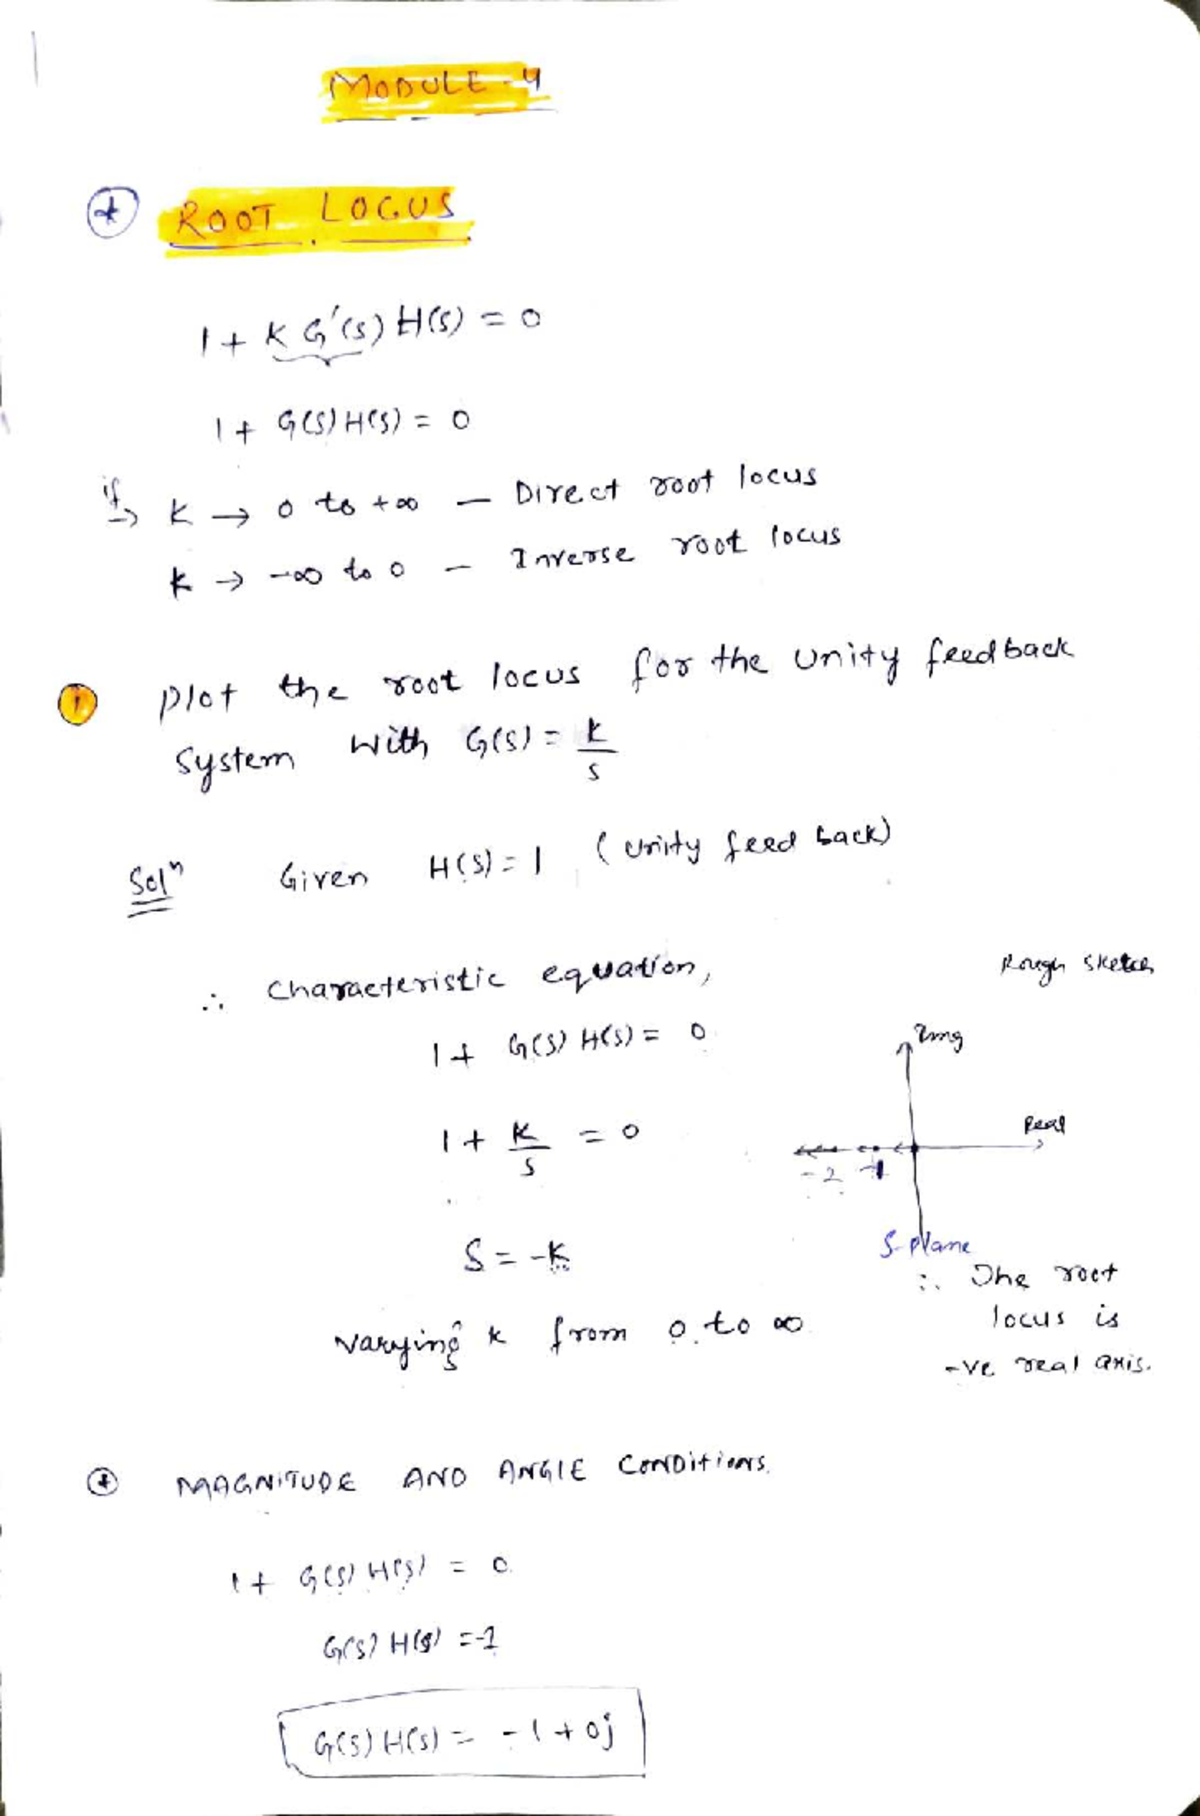 MODULE-4
* ROOT LOCUS
1 + K G'(s) H(s) = 0
1 + G(s) H(s) = 0
if → K → 0 to +∞ — Direct root locus
K → -∞ to 0 — Inverse root locus
1 plot the root locus for the unity feedback
system with G(s) = K/s
Solⁿ Given H(s) = 1 (unity feed back)
∴ characteristic equation,
1 + G(s) H(s) = 0
1 + K/s = 0
S = -K
varying K from 0 to ∞
Rough sketch
Img
Real
-2 -1
S-plane
∴ The root
locus is
-ve real axis.
* MAGNITUDE AND ANGLE CONDitions.
1 + G(s) H(s) = 0.
G(s) H(s) = -1
G(s) H(s) = -1 + 0j